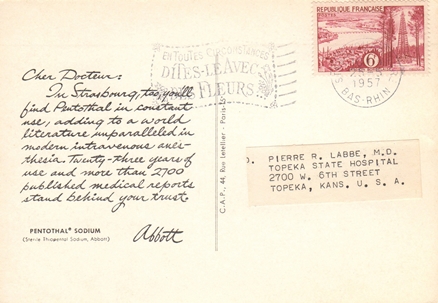 Cher Docteur:
In Strasbourg, too, you'll
find Pentothal in constant
use, adding to a world
literature unparalleled in
modern intravenous anes-
thesia. Twenty-three years of
use and more than 2700
published medical reports
stand behind your trust.
Abbott
PENTOTHAL® SODIUM
(Sterile Thiopental Sodium, Abbott)
C.A.P., 44, Rue Letellier - Paris
EN TOUTES CIRCONSTANCES
DITES-LE AVEC
FLEURS
RÉPUBLIQUE FRANÇAISE
POSTES
6F
1957
BAS-RHIN
PIERRE R. LABBE, M.D.
TOPEKA STATE HOSPITAL
2700 W. 6TH STREET
TOPEKA, KANS. U. S. A.